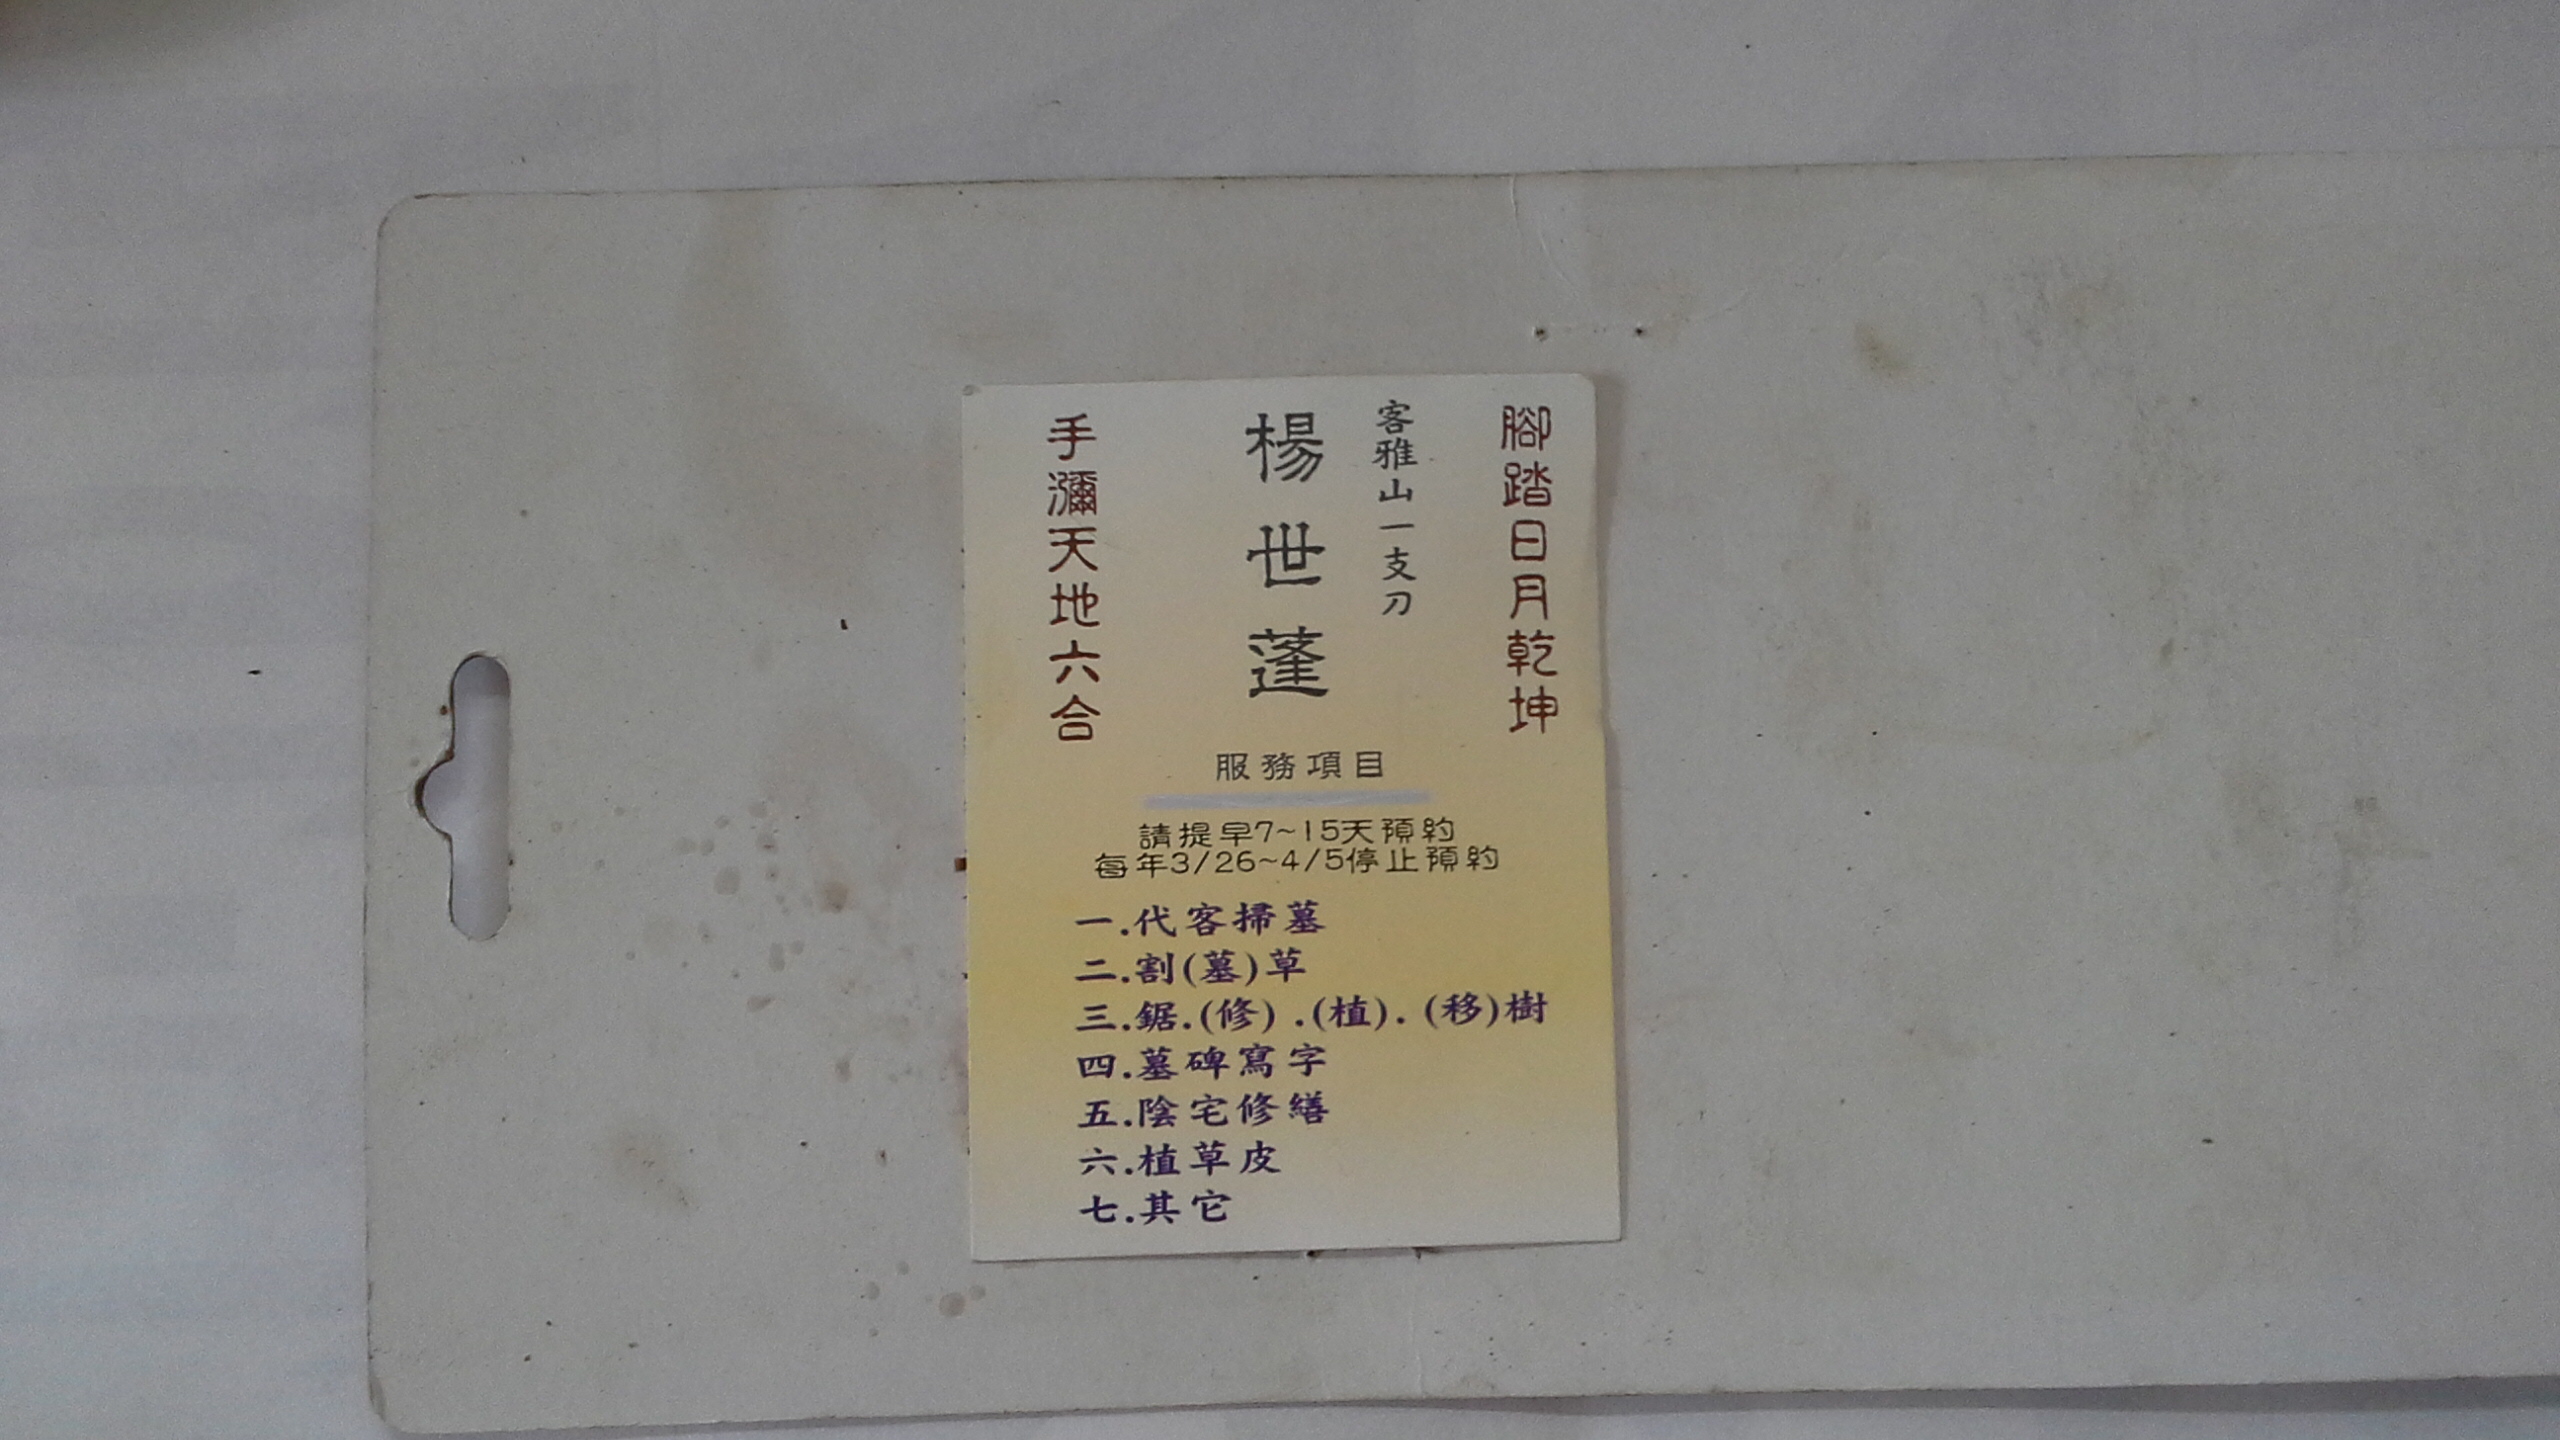 腳踏日月乾坤
客雅山一支刀
楊世蓬
手瀰天地六合
服務項目
請提早7~15天預約
每年3/26~4/5停止預約
一.代客掃墓
二.割(墓)草
三.鋸.(修) .(植). (移)樹
四.墓碑寫字
五.陰宅修繕
六.植草皮
七.其它